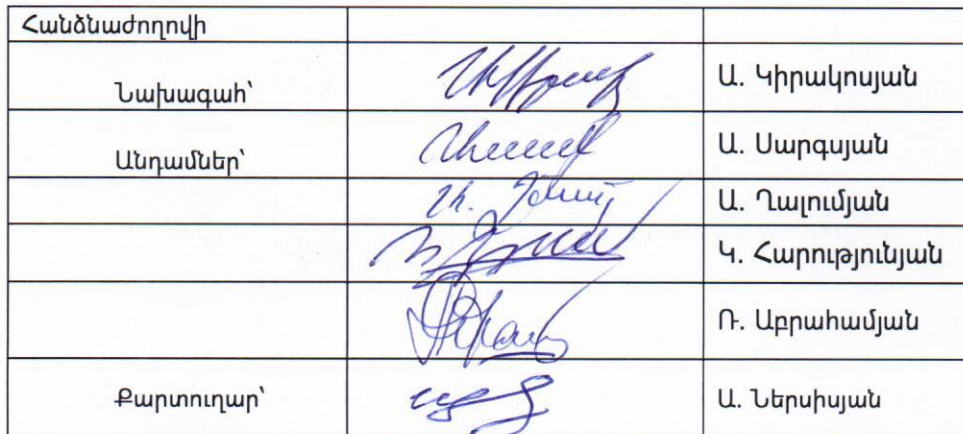 Հանձնաժողովի
Նախագահ՝ Ա. Կիրակոսյան
Անդամներ՝ Ա. Սարգսյան
Ա. Ղալումյան
Կ. Հարությունյան
Ռ. Աբրահամյան
Քարտուղար՝ Ա. Ներսիսյան